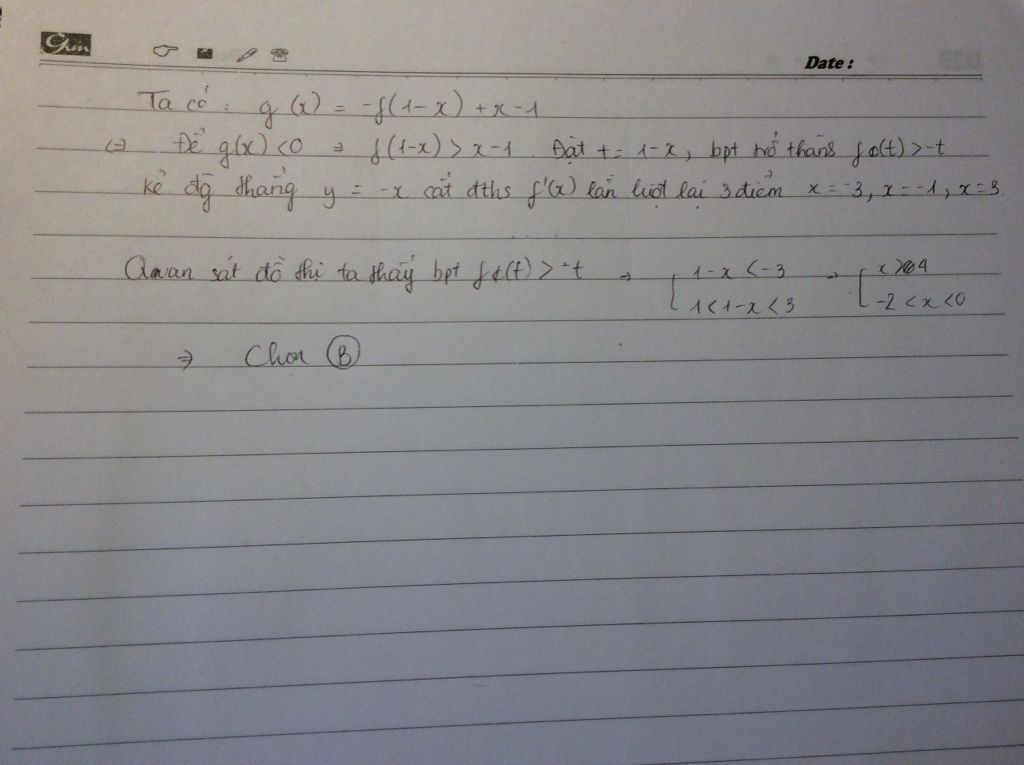 Grin
Date :
Ta có : g (x) = -f(1-x) + x - 1
(=) Để g(x) <0 ⇒ f(1-x) > x-1 Đặt t = 1-x, bpt trở thành f (t) > -t
Kẻ đg thẳng y = -x cắt đths f'(x) lần lượt tại 3 điểm x = -3, x = -1, x = 3
Quan sát đồ thị ta thấy bpt f (t) > -t → [ 1-x < -3 → [ x > 4
1 < 1-x < 3 -2 < x < 0
⇒ Chọn B